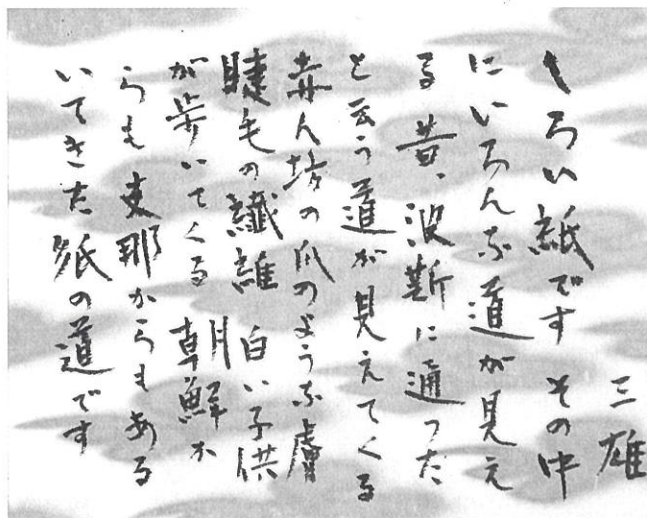 しろい紙です その中
にいろんな道が見え
る 昔、波斯に通つた
と云う道が見えてくる
赤ん坊の爪のような膚
睫毛の纎維 白い子供
が歩いてくる 朝鮮か
らも支那からもある
いてきた紙の道です
三雄